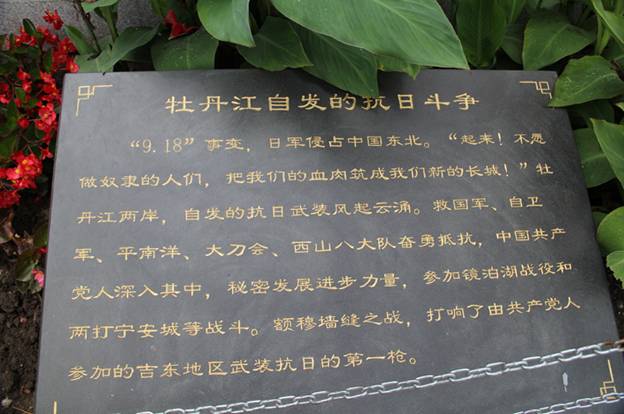 牡丹江自发的抗日斗争
“9.18”事变，日军侵占中国东北。“起来！不愿
做奴隶的人们，把我们的血肉筑成我们新的长城！”牡
丹江两岸，自发的抗日武装风起云涌。救国军、自卫
军、平南洋、大刀会、西山八大队奋勇抵抗，中国共产
党人深入其中，秘密发展进步力量，参加镜泊湖战役和
两打宁安城等战斗。额穆墙缝之战，打响了由共产党人
参加的吉东地区武装抗日的第一枪。